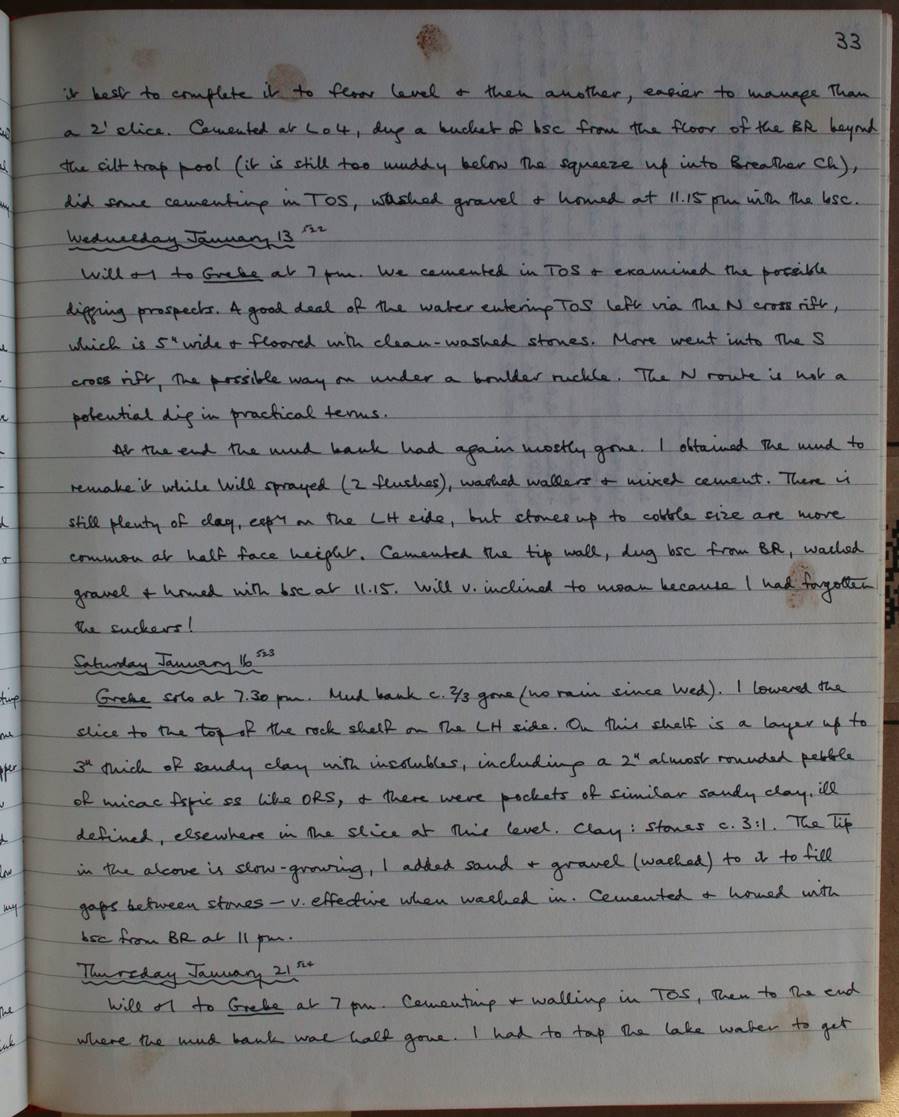 33
it best to complete it to floor level & then another, easier to manage than
a 2' slice. Cemented at Lo4, dug a bucket of bsc from the floor of the BR beyond
the silt trap pool (it is still too muddy below the squeeze up into Breather Ch),
did some cementing in TOS, washed gravel & homed at 11.15 pm with the bsc.
Wednesday January 13 522
Will & I to Grebe at 7 pm. We cemented in TOS & examined the possible
digging prospects. A good deal of the water entering TOS left via the N cross rift,
which is 5" wide & floored with clean-washed stones. More went into the S
cross rift, the possible way on under a boulder ruckle. The N route is not a
potential dig in practical terms.
At the end the mud bank had again mostly gone. I obtained the mud to
remake it while Will sprayed (2 flushes), washed wallers & mixed cement. There is
still plenty of clay, espy on the LH side, but stones up to cobble size are more
common at half face height. Cemented the tip wall, dug bsc from BR, washed
gravel & homed with bsc at 11.15. Will v. inclined to moan because I had forgotten
the suckers!
Saturday January 16 523
Grebe solo at 7.30 pm. Mud bank c. 2/3 gone (no rain since Wed). I lowered the
slice to the top of the rock shelf on the LH side. On this shelf is a layer up to
3" thick of sandy clay with insolubles, including a 2" almost rounded pebble
of micac fspic ss like ORS, & there were pockets of similar sandy clay, ill
defined, elsewhere in the slice at this level. Clay : stones c. 3:1. The tip
in the alcove is slow-growing, I added sand & gravel (washed) to it to fill
gaps between stones – v. effective when washed in. Cemented & homed with
bsc from BR at 11 pm.
Thursday January 21 524
Will & I to Grebe at 7 pm. Cementing & walling in TOS, then to the end
where the mud bank was half gone. I had to tap the lake water to get